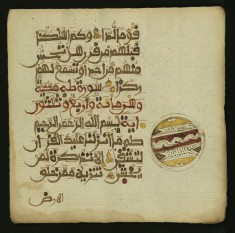 قوما لدا وكم اهلكنا
قبلهم من قرن هل تحس
منهم من احد او تسمع لهم
ركزا سورة طه مكية
وهي مائة واربع وثلثون
اية بسم الله الرحمن الرحيم
طه ما انزلنا عليك القران
لتشقى الا تذكرة لمن
يخشى تنزيلا ممن خلق
الارض